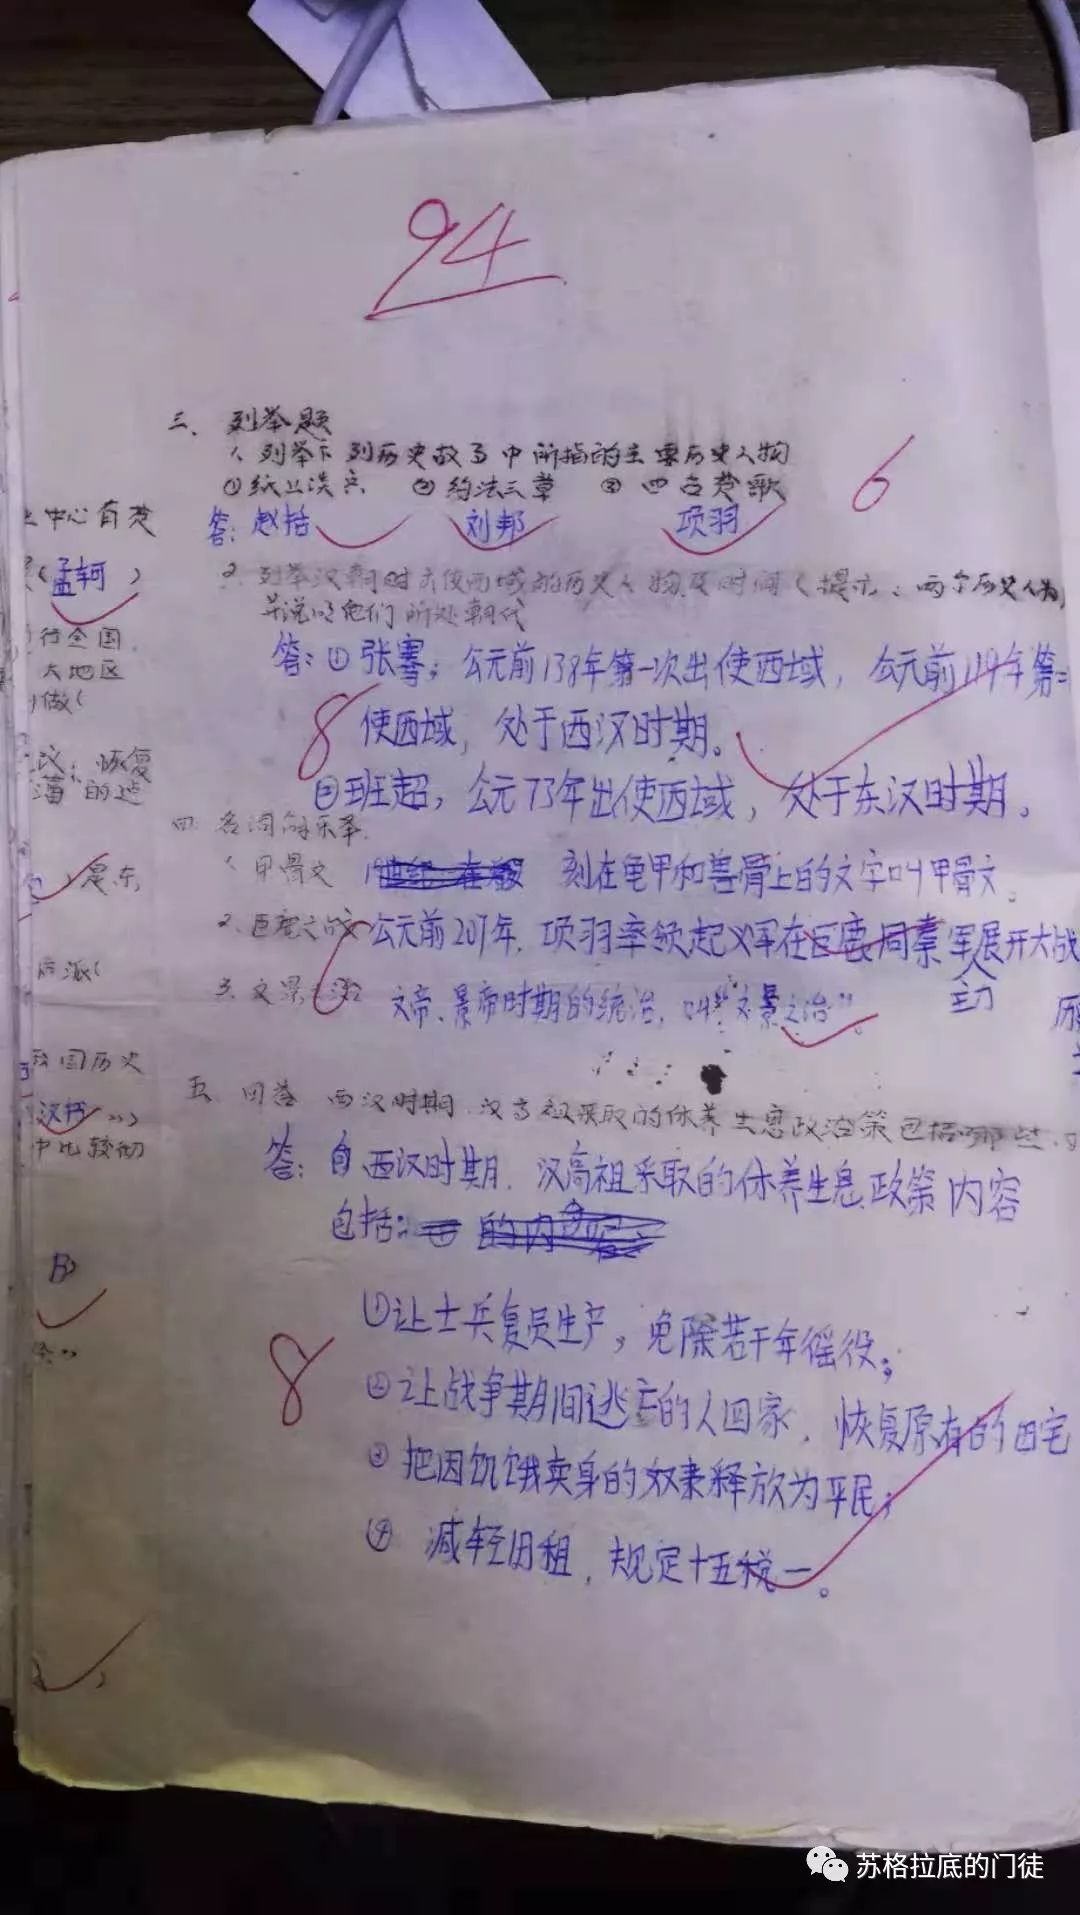 94
三、列举题
1、列举下列历史故事中所指的主要历史人物
①纸上谈兵 ②约法三章 ③四面楚歌
6
答:赵括 刘邦 项羽
2、列举汉朝时出使西域的历史人物及时间(提示:两个历史人物,
并说明他们所处朝代
答:①张骞;公元前138年第一次出使西域,公元前119年第二
8
使西域,处于西汉时期。
②班超,公元73年出使西域,处于东汉时期。
四、名词解释
1、甲骨文 刻在龟甲和兽骨上的文字叫甲骨文。
2、巨鹿之战 公元前207年,项羽率领起义军在巨鹿同秦军展开大战
主力
3、文景之治 文帝、景帝时期的统治,叫“文景之治”。
五、回答 西汉时期,汉高祖采取的休养生息政治策包括哪些
答:自西汉时期,汉高祖采取的休养生息政策内容
包括:
①让士兵复员生产,免除若干年徭役;
8
②让战争期间逃亡的人回家,恢复原有的田宅
③把因饥饿卖身的奴隶释放为平民;
④减轻田租,规定十五税一。
中心有楚
(孟轲)
行全国
大地区
做(
议;恢复
的述
是东
后派(
我国历史
汉书
中比较彻
B
苏格拉底的门徒